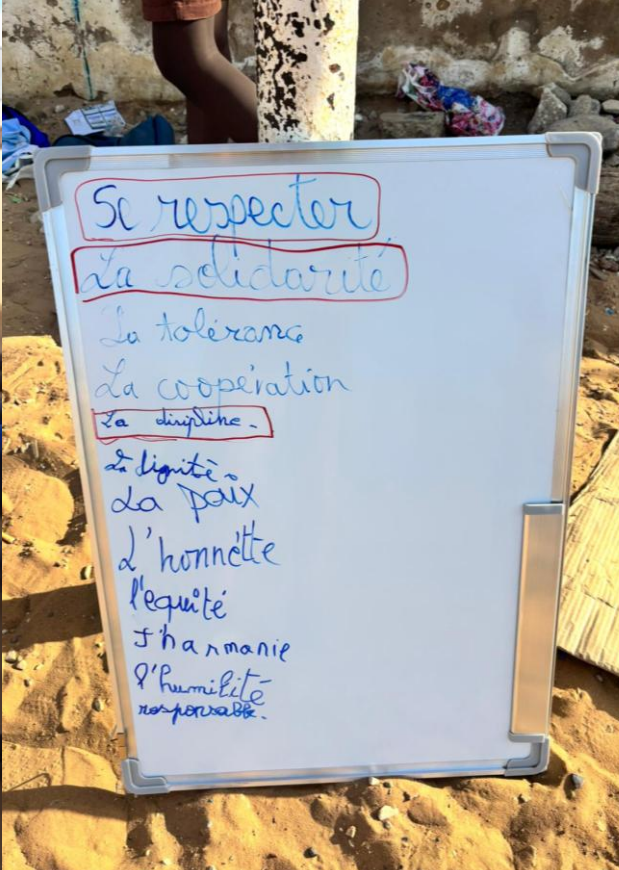 Se respecter
La solidarité
La tolérance
La coopération
La disipline.
La dignité.
La paix
L'honnétte
l'equité
l'harmanie
l'humilité
responsable.